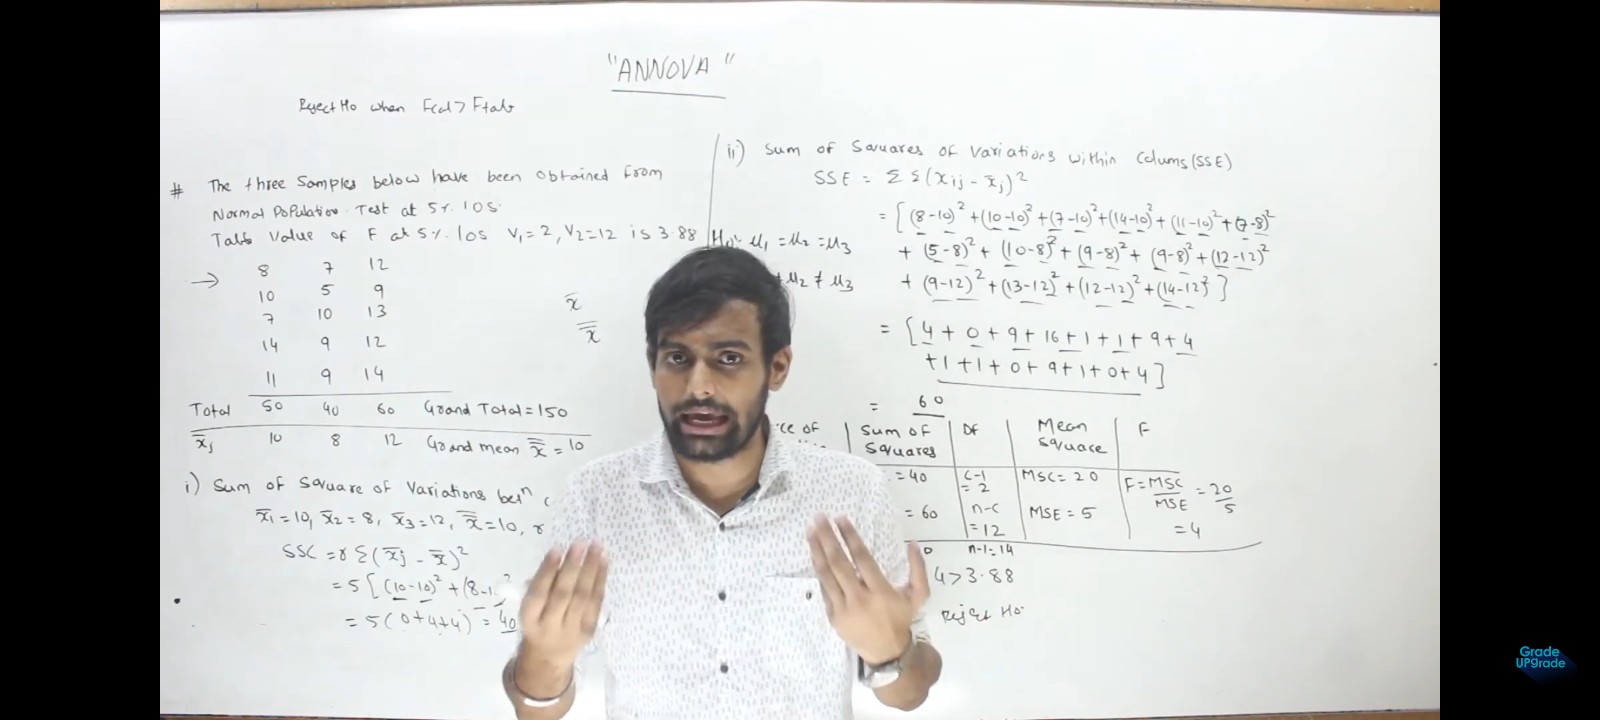 "ANNOVA"
Reject Ho when Fcal > Ftab
# The three samples below have been obtained from
Normal Population. Test at 5% los.
Table Value of F at 5% los V₁=2, V₂=12 is 3.88
→ 8 7 12
10 5 9
7 10 13
14 9 12
11 9 14
Total 50 40 60 Grand Total = 150
x̄j 10 8 12 Grand mean x̿ = 10
x̄
x̿
i) Sum of Square of Variations betⁿ c
x̄₁=10, x̄₂=8, x̄₃=12, x̿=10, r
SSC = r Σ(x̄j - x̿)²
= 5[(10-10)² + (8-1
= 5(0+4+4) = 40
Ho: μ₁ = μ₂ = μ₃
μ₂ ≠ μ₃
ii) Sum of Squares of Variations within Colums (SSE)
SSE = Σ Σ(xij - x̄j)²
= [(8-10)² + (10-10)² + (7-10)² + (14-10)² + (11-10)² + (7-8)²
+ (5-8)² + (10-8)² + (9-8)² + (9-8)² + (12-12)²
+ (9-12)² + (13-12)² + (12-12)² + (14-12)²]
= [4 + 0 + 9 + 16 + 1 + 1 + 9 + 4
+1 +1 + 0 + 9 + 1 + 0 + 4]
= 60
ce of Sum of Squares DF Mean Square F
= 40 c-1 = 2 MSC = 20 F = MSC/MSE = 20/5
= 60 n-c = 12 MSE = 5 = 4
0 n-1 = 14
4 > 3.88
Reject Ho.
Grade
UPgrade